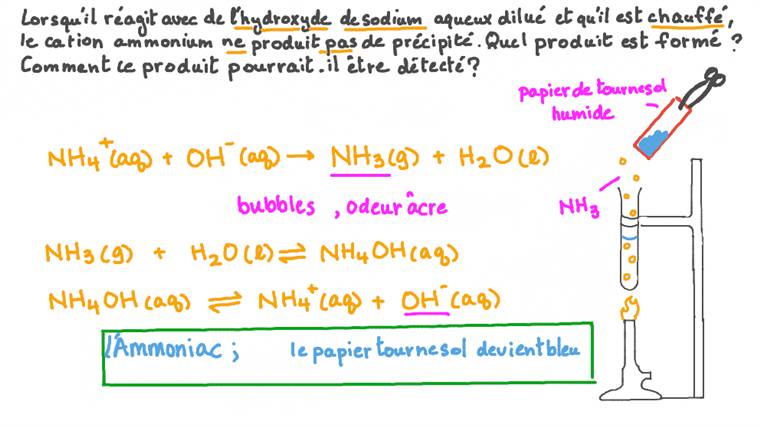 Lorsqu'il réagit avec de l'hydroxyde de sodium aqueux dilué et qu'il est chauffé,
le cation ammonium ne produit pas de précipité. Quel produit est formé ?
Comment ce produit pourrait-il être détecté ?
papier de tournesol
humide
NH₄⁺(aq) + OH⁻(aq) → NH₃(g) + H₂O(l)
NH₃
bubbles, odeur âcre
NH₃(g) + H₂O(l) ⇌ NH₄OH(aq)
NH₄OH(aq) ⇌ NH₄⁺(aq) + OH⁻(aq)
l'Ammoniac ; le papier tournesol devient bleu